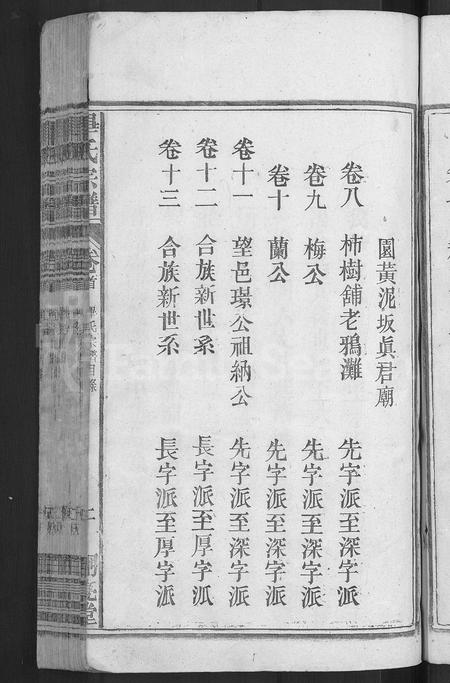 園黃泥坂眞君廟
卷八 柿樹舖老鴉灘 先字派至深字派
卷九 梅公 先字派至深字派
卷十 蘭公 先字派至深字派
卷十一 望邑璟公祖納公 先字派至深字派
卷十二 合族新世系 長字派至厚字派
卷十三 合族新世系 長字派至厚字派
畢氏宗譜
卷首
畢氏宗譜目錄